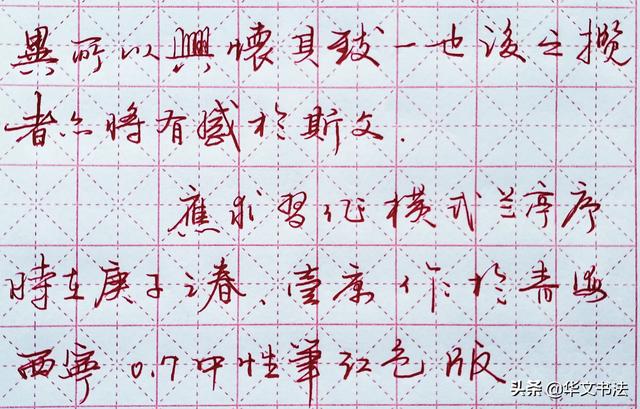 異所以興懷其致一也後之攬
者亦將有感於斯文.
應求習作橫式兰亭序
時在庚子之春、作於青海
西寧 0.7中性筆紅色版
头条 @华文书法